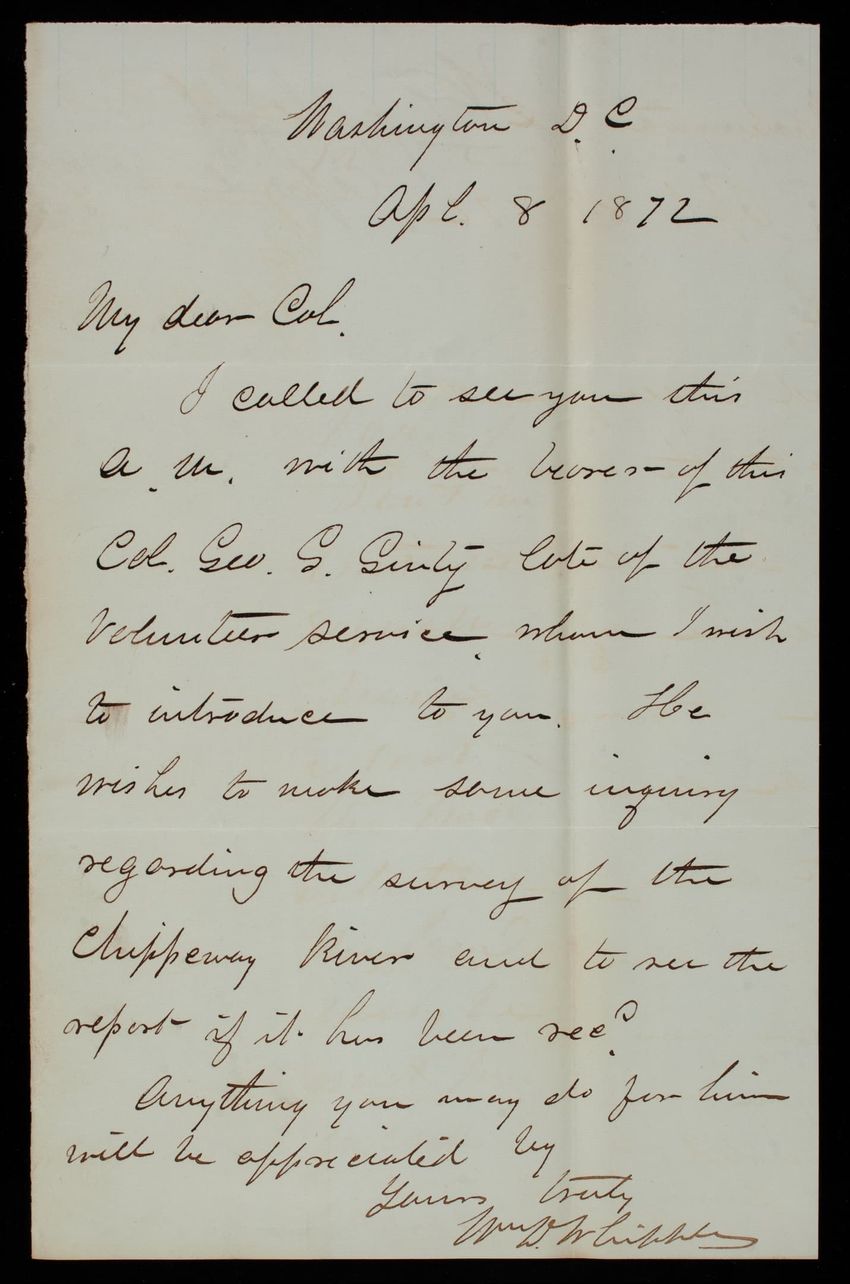 Washington D.C.
Apl. 8 1872
My dear Col.
I called to see you this
a.m. with the bearer of this
Col. Geo. G. Ginty late of the
Volunteer service, whom I wish
to introduce to you. He
wishes to make some inquiry
regarding the survey of the
Chippeway River and to see the
report if it has been recd.
Anything you may do for him
will be appreciated by
Yours truly
Wm D. Whipple